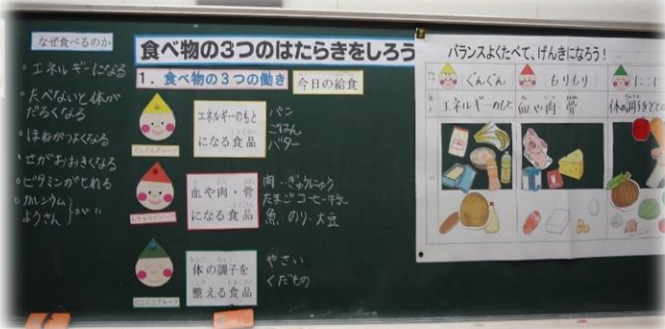 なぜ食べるのか
・エネルギーになる
・たべないと体が
だるくなる
・ほねがつよくなる
・せがおおきくなる
・ビタミンがとれる
・カルシウム
ようさん
食べ物の3つのはたらきをしろう
1. 食べ物の3つの働き
今日の給食
エネルギーのもと
になる食品
パン
ごはん
バター
ぐんぐんグループ
血や肉・骨
になる食品
肉・ぎゅうにゅう
たまご コーヒー牛乳
魚 のり 大豆
もりもりグループ
体の調子を
整える食品
やさい
くだもの
にこにこグループ
バランスよくたべて、げんきになろう!
ぐんぐん
もりもり
にこに
エネルギーのもと
血や肉・骨
体の調子をととの